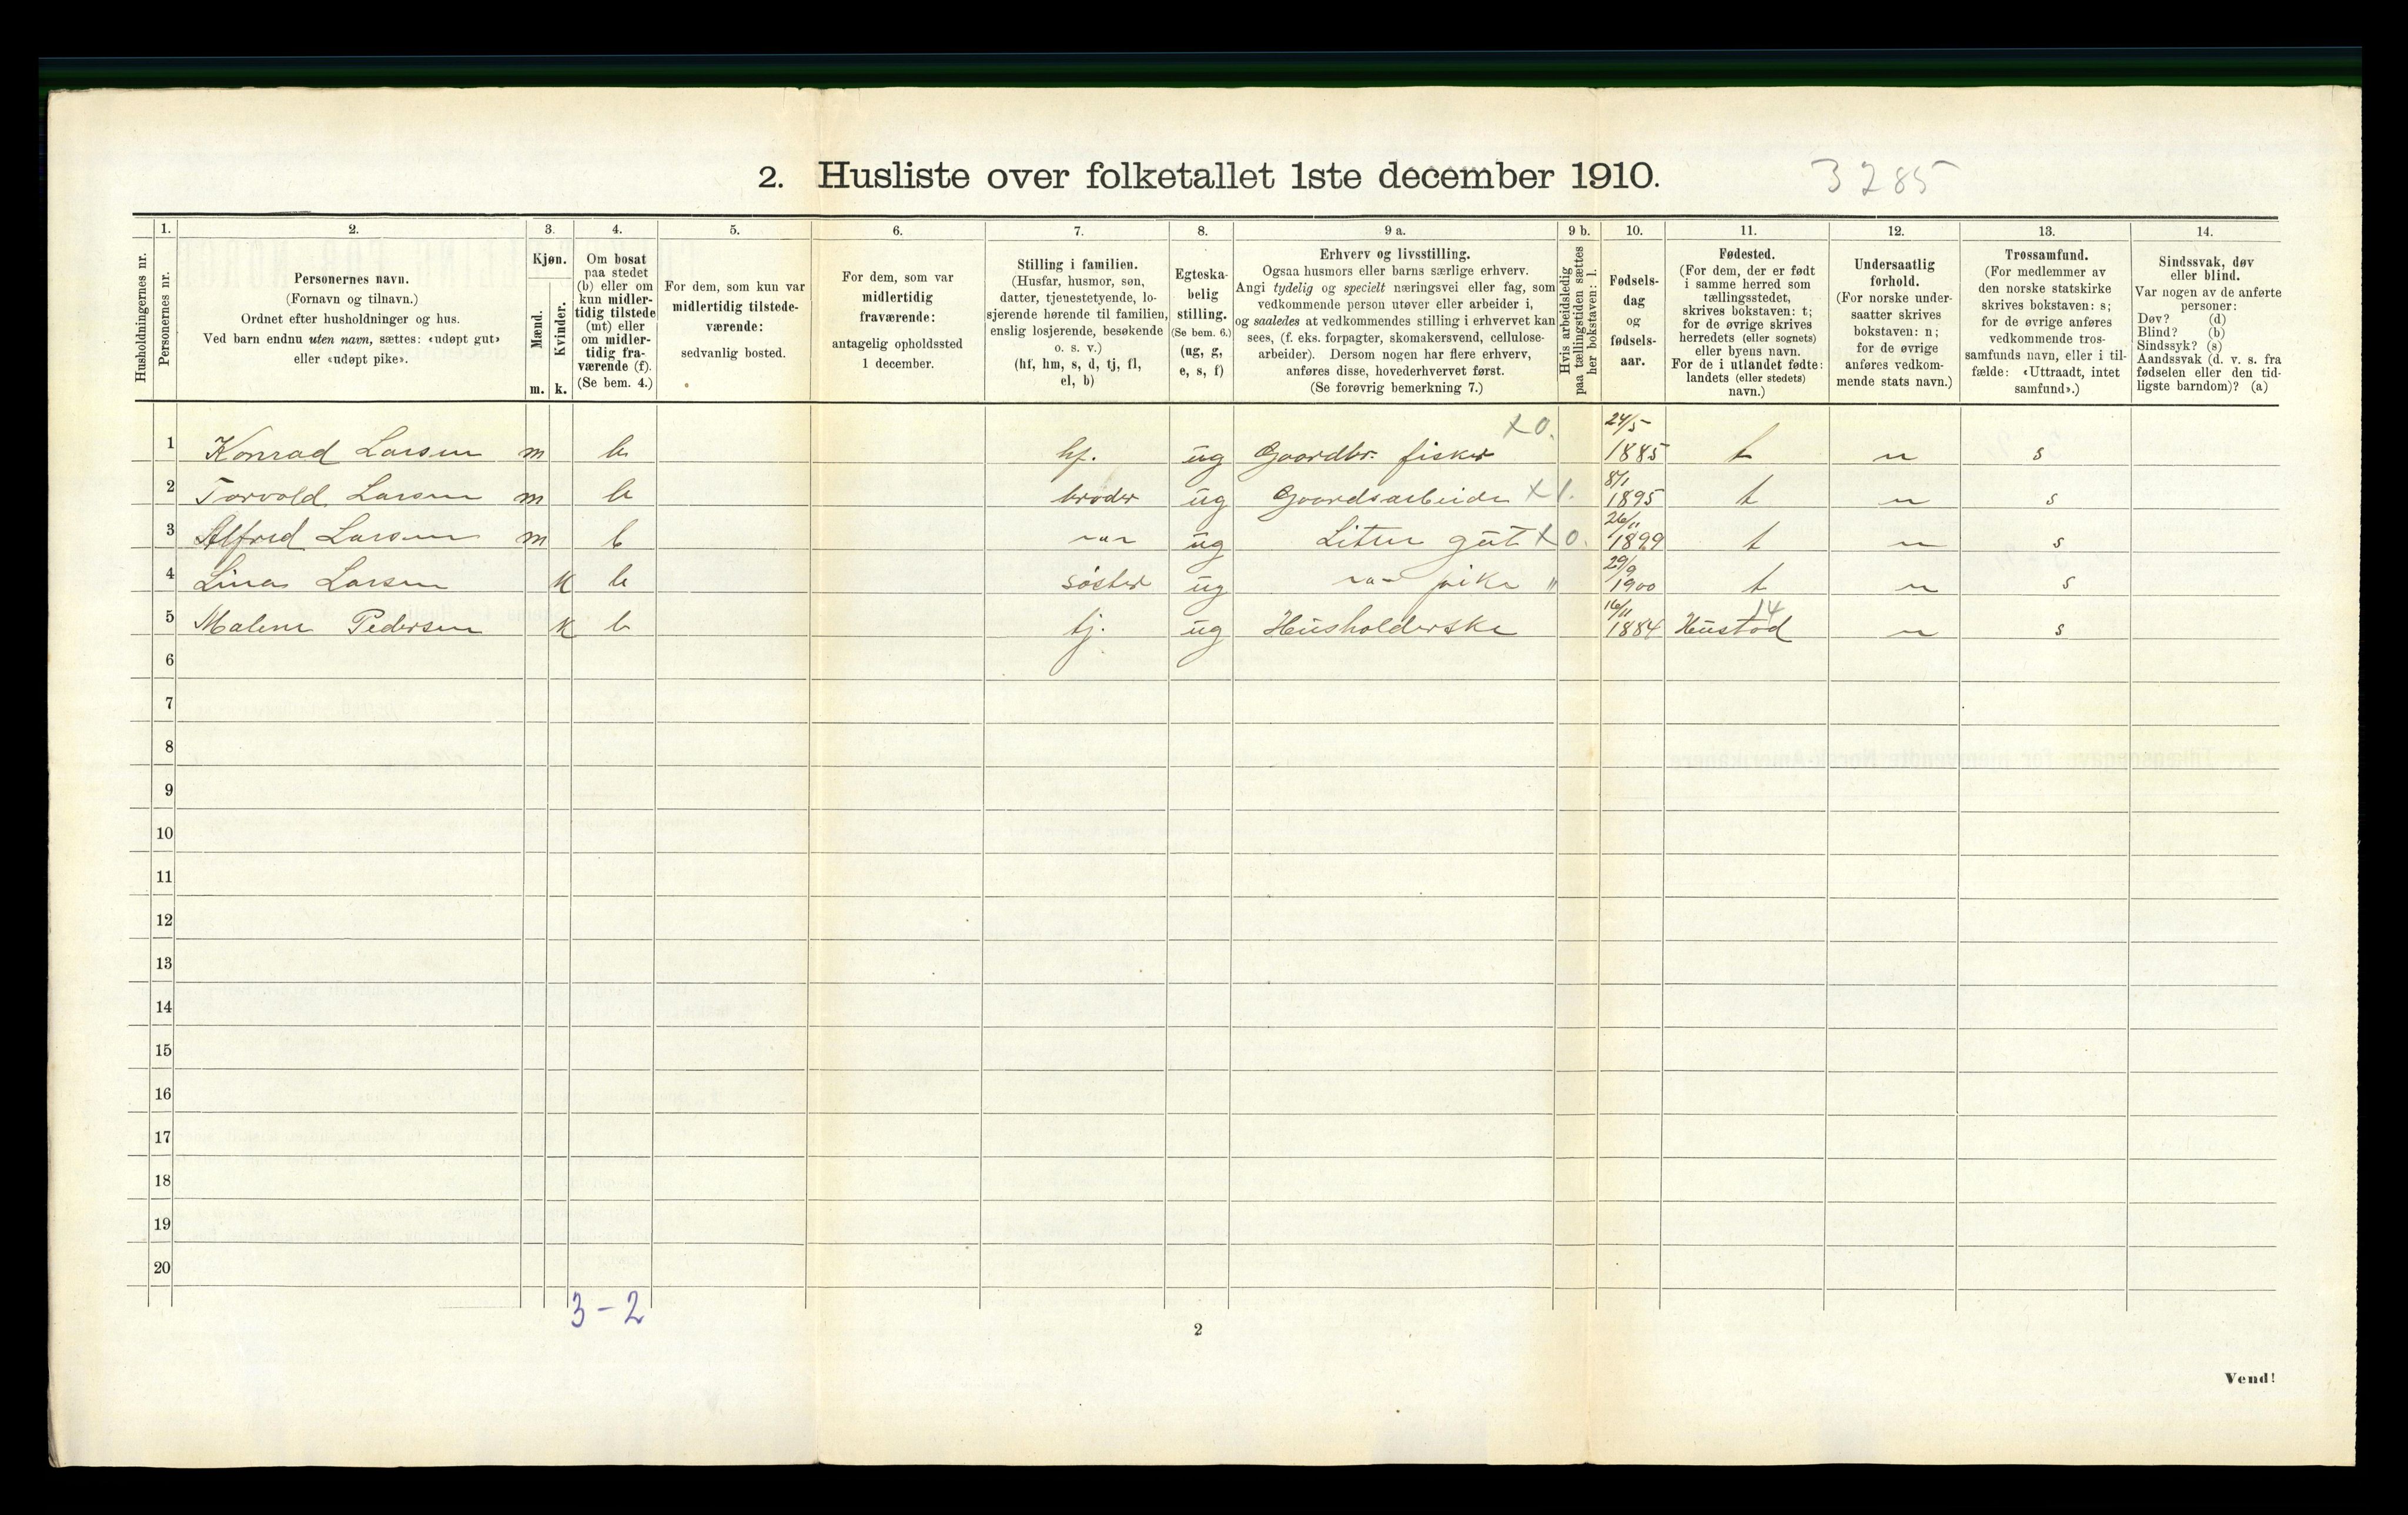 2. Husliste over folketallet 1ste december 1910.
3285
Husholdningernes nr.
1.
Personernes nr.
2.
Personernes navn.
(Fornavn og tilnavn.)
Ordnet efter husholdninger og hus.
Ved barn endnu uten navn, sættes: «udøpt gut»
eller «udøpt pike».
3.
Kjøn.
Mænd.
Kvinder.
m. k.
4.
Om bosat
paa stedet
(b) eller om
kun midler-
tidig tilstede
(mt) eller
om midler-
tidig fra-
værende (f).
(Se bem. 4.)
5.
For dem, som kun var
midlertidig tilstede-
værende:
sedvanlig bosted.
6.
For dem, som var
midlertidig
fraværende:
antagelig opholdssted
1 december.
7.
Stilling i familien.
(Husfar, husmor, søn,
datter, tjenestetyende, lo-
sjerende hørende til familien,
enslig losjerende, besøkende
o. s. v.)
(hf, hm, s, d, tj, fl,
el, b)
8.
Egteska-
belig
stilling.
(Se bem. 6.)
(ug, g,
e, s, f)
9 a.
Erhverv og livsstilling.
Ogsaa husmors eller barns særlige erhverv.
Angi tydelig og specielt næringsvei eller fag, som
vedkommende person utøver eller arbeider i,
og saaledes at vedkommendes stilling i erhvervet kan
sees, (f. eks. forpagter, skomakersvend, cellulose-
arbeider). Dersom nogen har flere erhverv,
anføres disse, hovederhvervet først.
(Se forøvrig bemerkning 7.)
9 b.
Hvis arbeidsledig
paa tællingstiden sættes
her bokstaven: l.
10.
Fødsels-
dag
og
fødsels-
aar.
11.
Fødested.
(For dem, der er født
i samme herred som
tællingsstedet,
skrives bokstaven: t;
for de øvrige skrives
herredets (eller sognets)
eller byens navn.
For de i utlandet fødte:
landets (eller stedets)
navn.)
12.
Undersaatlig
forhold.
(For norske under-
saatter skrives
bokstaven: n;
for de øvrige
anføres vedkom-
mende stats navn.)
13.
Trossamfund.
(For medlemmer av
den norske statskirke
skrives bokstaven: s;
for de øvrige anføres
vedkommende tros-
samfunds navn, eller i til-
fælde: «Uttraadt, intet
samfund».)
14.
Sindssvak, døv
eller blind.
Var nogen av de anførte
personer:
Døv? (d)
Blind? (b)
Sindssyk? (s)
Aandssvak (d. v. s. fra
fødselen eller den tid-
ligste barndom)? (a)
1 Konrad Larsen m b hf. ug Gaardbr. fisker x 0. 24/5 1885 t n s
2 Torvald Larsen m b broder ug Gaardsarbeider x 1. 8/1 1895 t n s
3 Alfred Larsen m b -"- ug Liten gut x 0. 26/11 1899 t n s
4 Lina Larsen k b søster ug -"- pike " 29/9 1900 t n s
5 Malene Pedersen k b tj. ug Husholderske 16/11 1884 Hustad 14 n s
6
7
8
9
10
11
12
13
14
15
16
17
18
19
20
3-2
2
Vend!